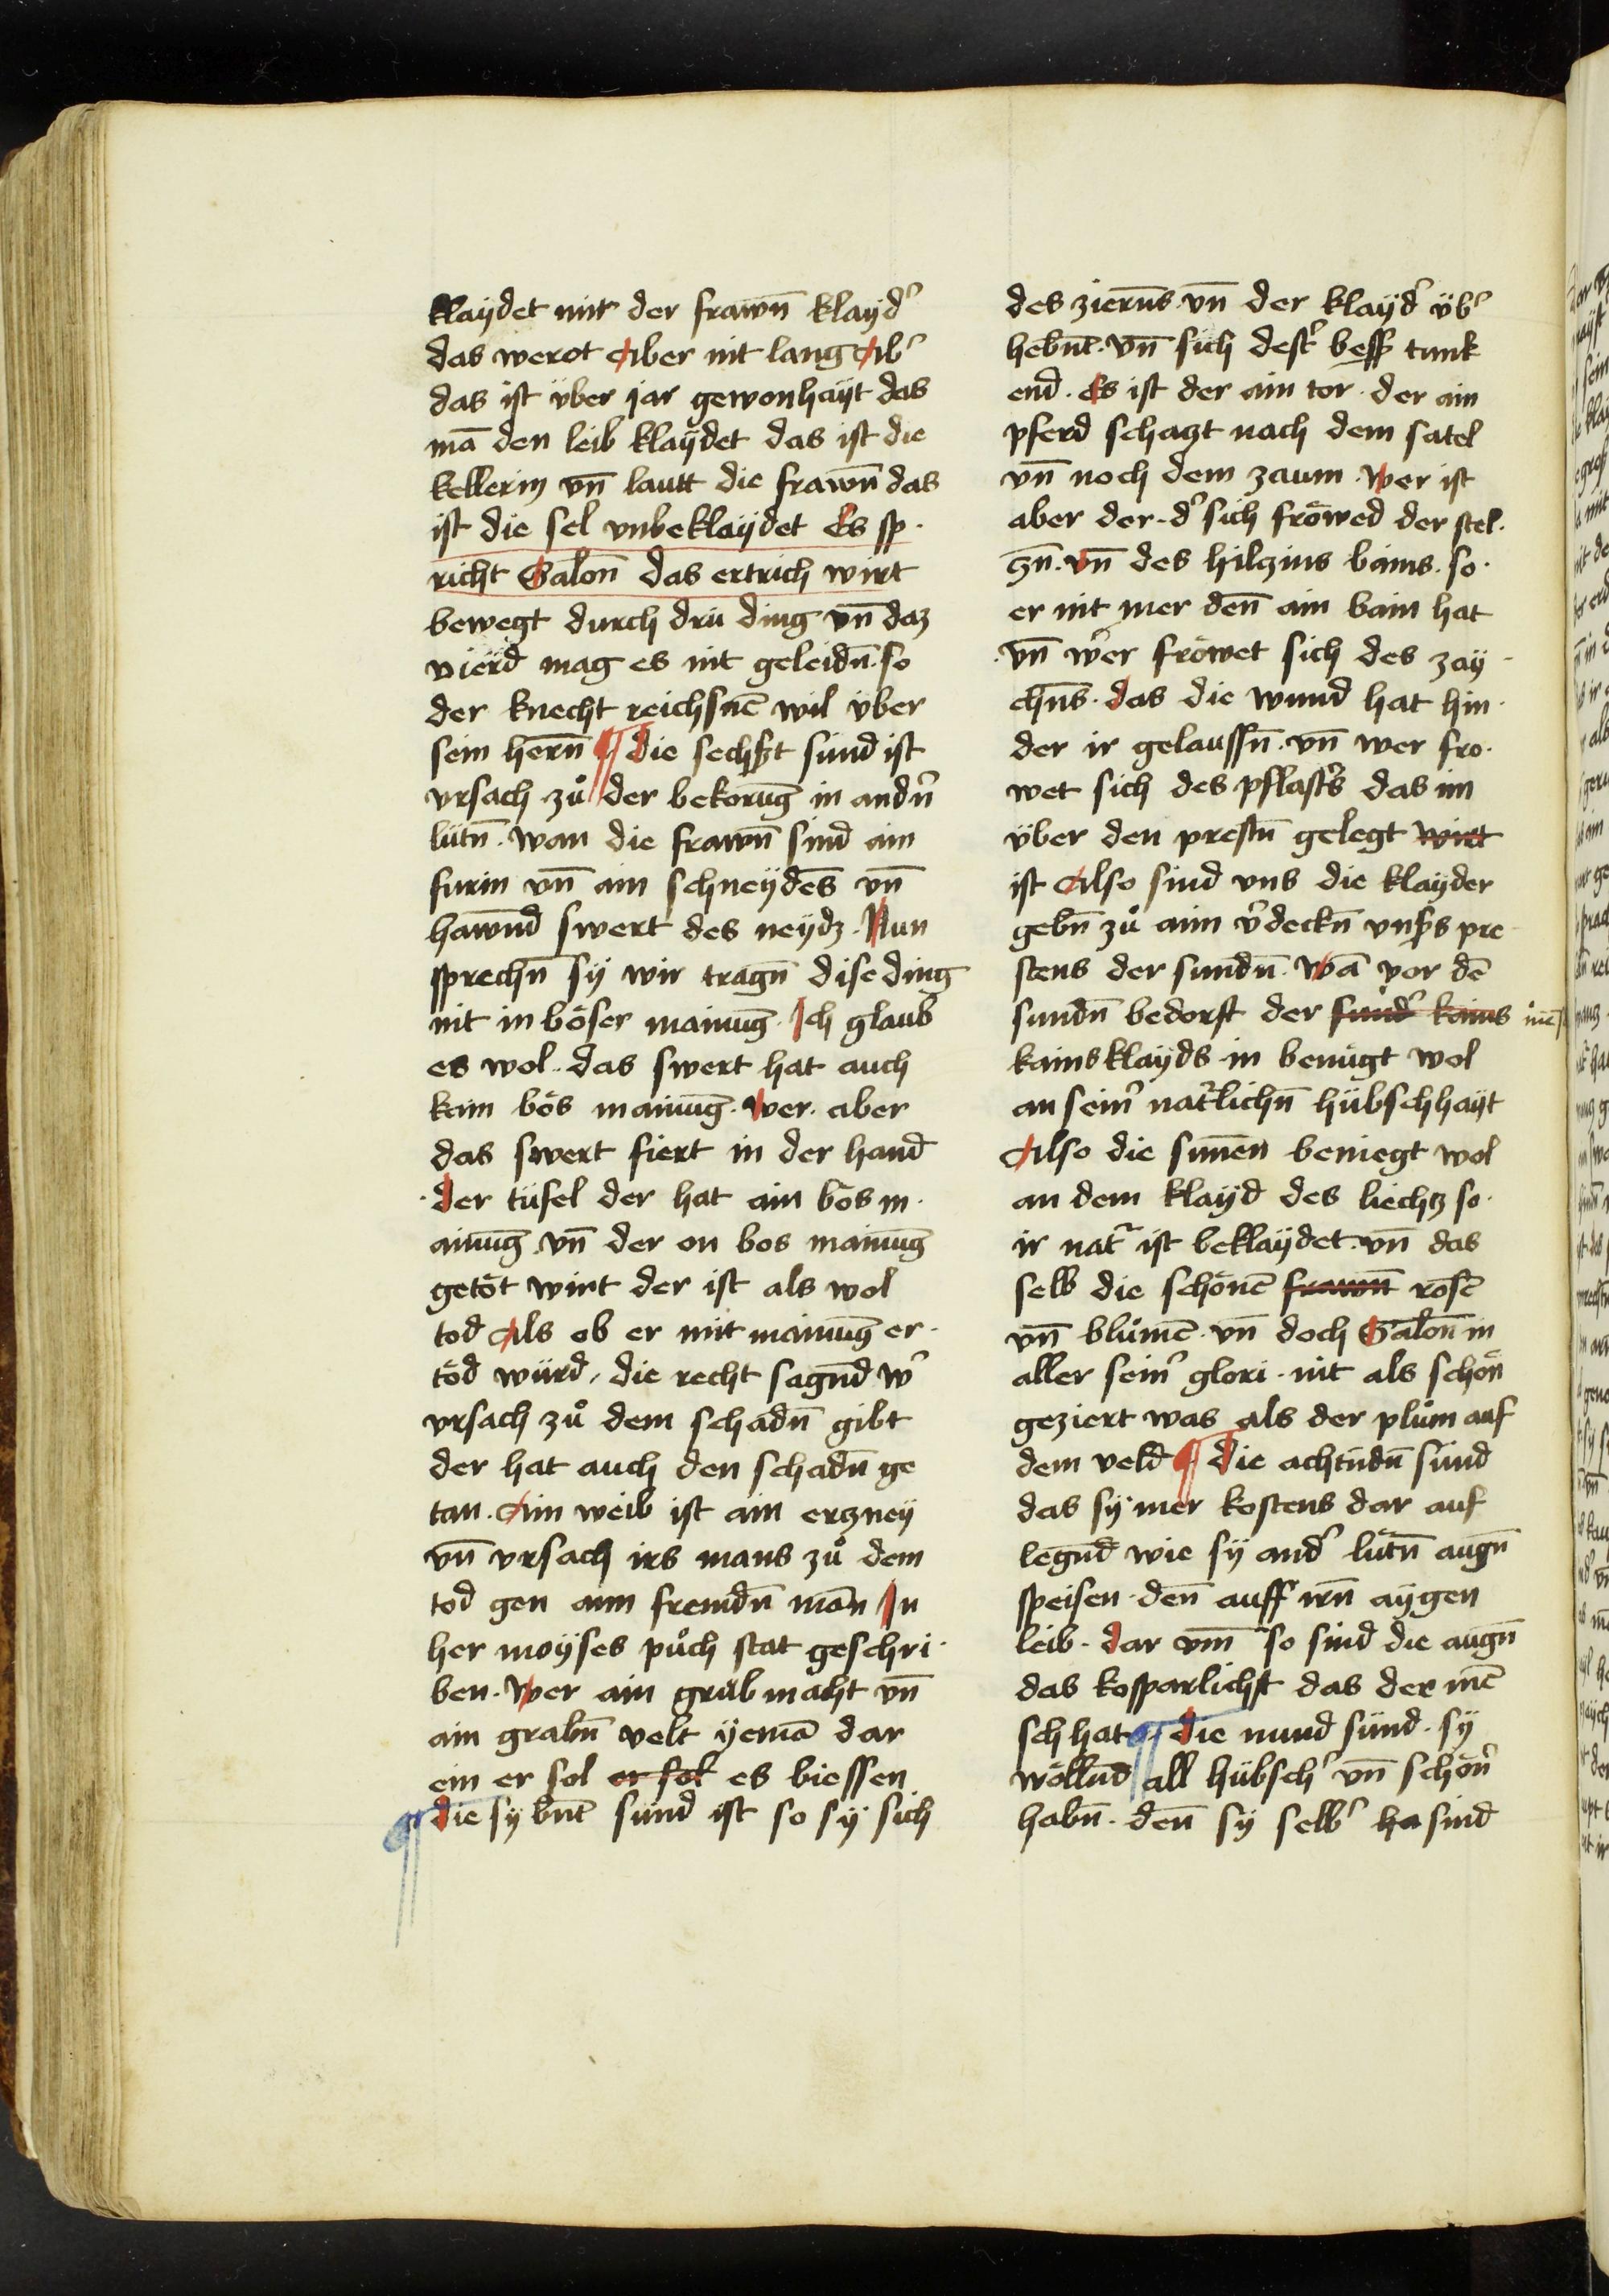 klaydet mit der frawn̄ klayd᾽
das werot Aber nit lang Ab᾽
das ist über jar gewonhayt das
mā den leib klaydet das ist die
kellerin vn̄ lautt die frawn̄ das
ist die sel vnbeklaydet Es sp·
richt Salon̄ das ertrich wirt
bewegt durch drü ding vn̄ daz
vierd mag es nit geleidn̄· so
der knecht reichsnē wil über
sein hern̄ ¶ Die sechst sünd ist
vrsach zů der bekorūg in andn̄
lütn̄· wan die frawn̄ sind ain
furin vn̄ ain schneydēs vn̄
hawnd swert des neydz· Nun
sprechn̄ sy wir tragn̄ dise ding
nit in böser mainūg· Ich glaub
es wol· das swert hat auch
kain bös mainūg· Wer aber
das swert fiert in der hand
·der tüfel der hat ain bös m·
ainūg vn̄ der on bos mainūg
getöt wirt der ist als wol
tod Als ob er mit mainūg er·
töd würd, die recht sagnd w᾽
vrsach zů dem schadn̄ gibt
der hat auch den schadn̄ ge
tan· Ain weib ist ain erzney
vn̄ vrsach irs mans zů dem
tod gen aim fremdn̄ man In
her moyses půch stat geschri·
ben· Wer ain grůb macht vn̄
ain grabn̄ velt yemā dar
ein er sol er sol es biessen
¶ die sybnt sünd ist so sy sich
des zierns vn̄ der klayd᾽ üb᾽
hebnt· vn̄ sich dest᾽ bess᾽ tunk
end· Es ist der ain tor· der ain
pferd schazt nach dem satel
vn̄ noch dem zaum· Wer ist
aber der· d᾽ sich fröwed der stel·
zn̄· vn̄ des hilzins bains· so·
er nit mer den̄ ain bain hat
·vn̄ wer fröwet sich des zay·
chns· das die wund hat hin·
der ir gelaussn̄· vn̄ wer fro·
wet sich des pflast᾽s das im
über den prestn̄ gelegt wirt
ist Also sind vns die klayder
gebn̄ zů aim v᾽deckn̄ vns᾽s pre
stens der sundn̄· Wā vor dē
sundn̄ bedorft der sund᾽ kains mēs
kains klayds· in benügt wol
an sein᾽ nat᾽lichn̄ hübschhayt
Also die sunnen beniegt wol
an dem klayd des liechz so·
ir nat᾽ ist beklaydet· vn̄ das
selb die schönē frawn̄ rosē
vn̄ blůmē· vn̄ doch Salon̄ in
aller sein᾽ glori· nit als schön
geziert was als der plům auf
dem veld ¶ Die achtndn̄ sünd
das sy mer kostens dar auf
legnd wie sy and᾽ lütn̄ augn̄
speisen· den̄ auff irn̄ aygen
leib· dar vm̄ so sind die augn̄
das kosparlichst das der mē
sch hat ¶ Die nund sünd· sy
wöllnd all hübsch᾽ vn̄ schön᾽
habn̄· den̄ sy selb᾽ ha sind